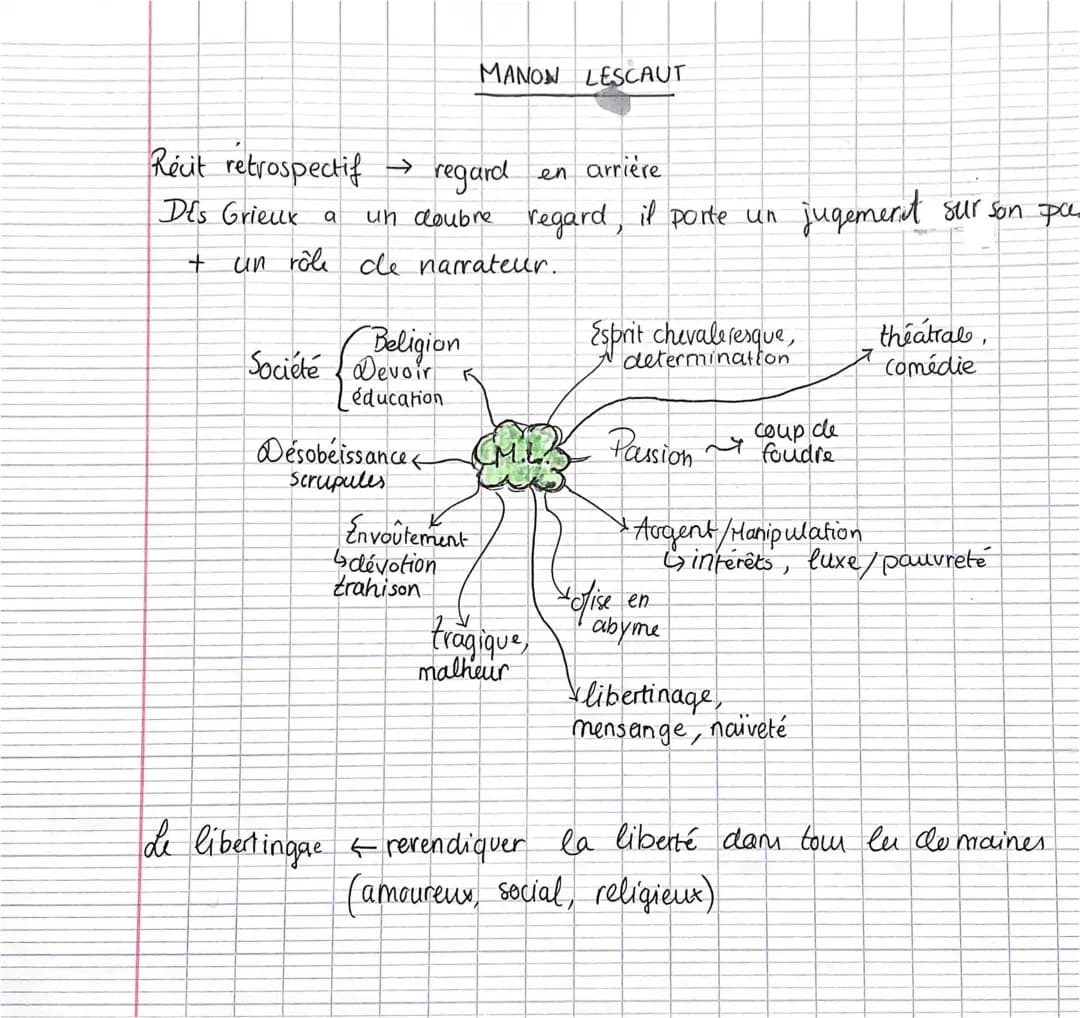 MANON LESCAUT
Récit rétrospectif → regard en arrière
Des Grieux a un doubre regard, il porte un jugement sur son pa
+ un rôle de narrateur.
Société { Beligion
Devoir
éducation
Esprit chevaleresque,
determination
théâtrale,
comédie
Désobéissance
scrupules
M.L.
Passion → coup de
foudre
Envoûtement
↳ dévotion
trahison
Argent/Manipulation
↳ intérêts, luxe/pauvreté
Mise en
abyme
tragique,
malheur
libertinage,
mensange, naïveté
Le libertingae ← revendiquer la liberté dans tous les domaines
(amoureux, social, religieux)